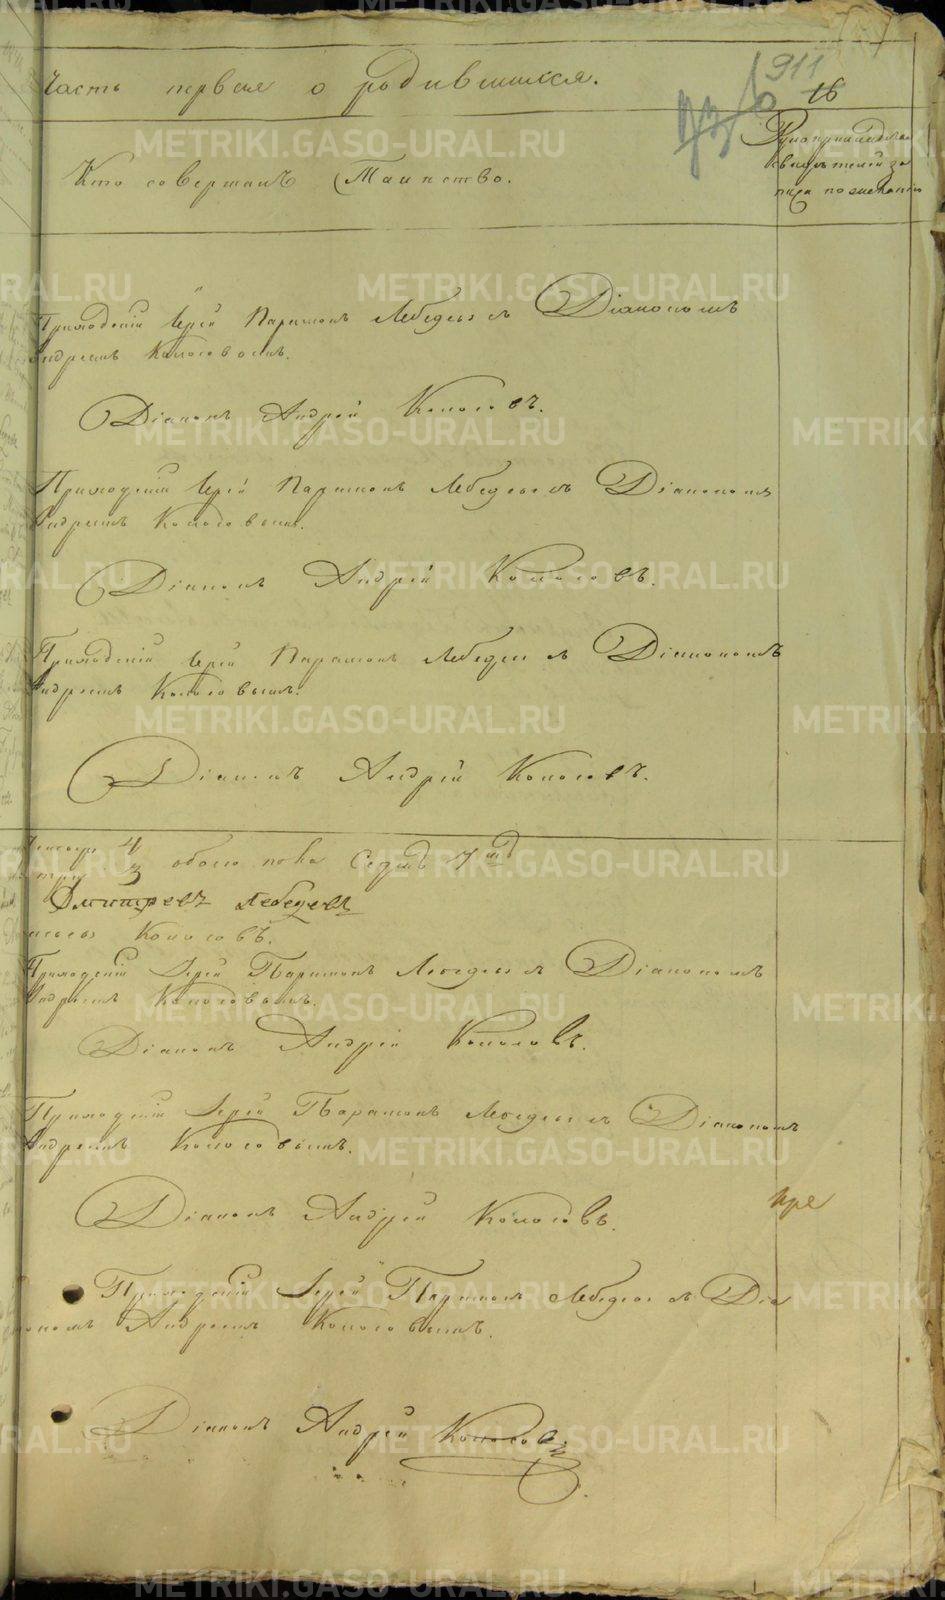 Часть первая о родившихся.
911
16
Кто совершалъ Таинство.
Рукоприкладство
свидѣтелей за
писи по желанію
Приходскій Іерей Парамонъ Лебедевъ съ Діакономъ
Андреемъ Колосовымъ.
Діаконъ Андрей Колосовъ.
Приходскій Іерей Парамонъ Лебедевъ съ Діакономъ
Андреемъ Колосовымъ.
Діаконъ Андрей Колосовъ.
Приходскій Іерей Парамонъ Лебедевъ съ Діакономъ
Андреемъ Колосовымъ.
Діаконъ Андрей Колосовъ.
4 обоего пола Седмь 7
три 3
Лебедевъ
Колосовъ.
Приходскій Іерей Парамонъ Лебедевъ съ Діакономъ
Андреемъ Колосовымъ.
Діаконъ Андрей Колосовъ.
Приходскій Іерей Парамонъ Лебедевъ съ Діакономъ
Андреемъ Колосовымъ.
Діаконъ Андрей Колосовъ.
Приходскій Іерей Парамонъ Лебедевъ съ Діа
кономъ Андреемъ Колосовымъ.
Діаконъ Андрей Колосовъ.
METRIKI.GASO-URAL.RU